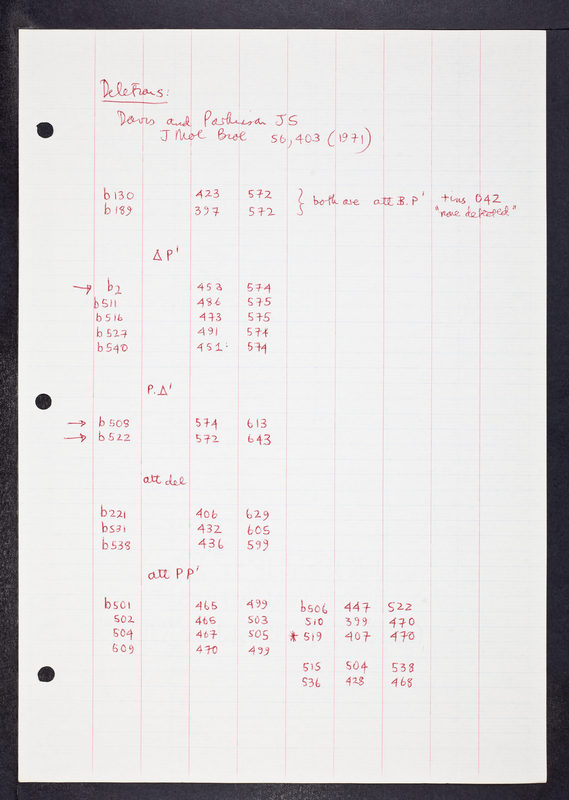 Deletions:
Davis and Parkinson JS
J Mol Biol 56, 403 (1971)
b130 423 572 } both are att B.P' + ins
b189 397 572 "more defective"
Δ P'
→ b2 453 574
b511 486 575
b516 473 575
b527 491 574
b540 451 574
P.Δ'
→ b508 574 613
→ b522 572 643
att del
b221 406 629
b531 432 605
b538 436 599
att PP'
b501 465 499 b506 447 522
502 465 503 510 399 470
504 467 505 * 519 407 470
609 470 499
515 504 538
536 428 468